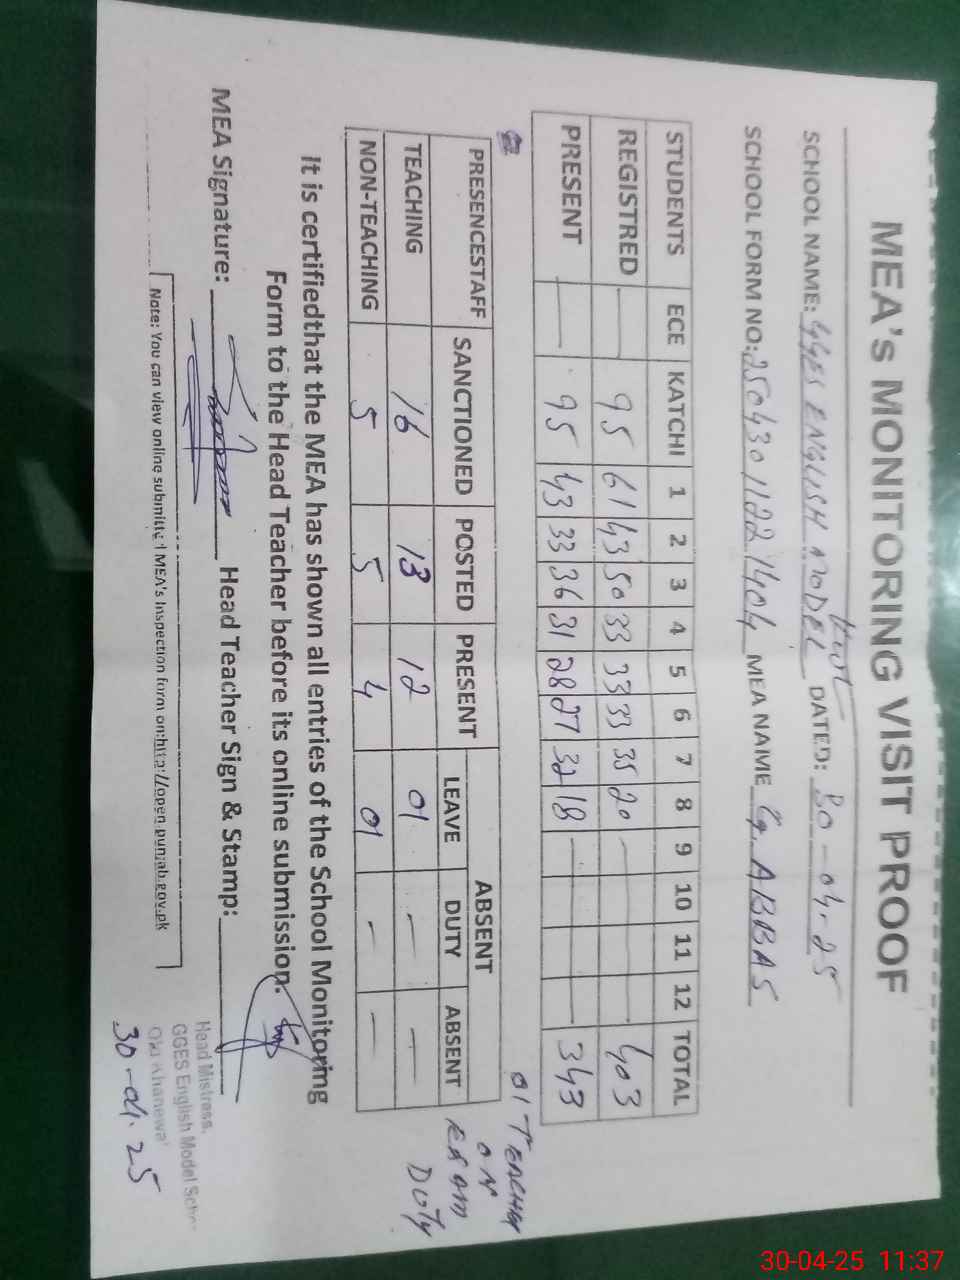 MEA's MONITORING VISIT PROOF
SCHOOL NAME: GGES ENGLISH MODEL DATED: 30-04-25
SCHOOL FORM NO: 2504301122 1404 MEA NAME ABBAS
STUDENTS ECE KATCHI 1 2 3 4 5 6 7 8 9 10 11 12 TOTAL
REGISTRED — 95 61 43 50 33 33 33 35 20 — 403
PRESENT — 95 43 33 36 31 28 27 32 18 — 343
PRESENCESTAFF SANCTIONED POSTED PRESENT ABSENT
LEAVE DUTY ABSENT
TEACHING 16 13 12 01 — —
NON-TEACHING 5 5 4 01 — —
01-TEACHER
ON
EXAM
DUTY
It is certifiedthat the MEA has shown all entries of the School Monitoring
Form to the Head Teacher before its online submission.
MEA Signature: Head Teacher Sign & Stamp:
Head Mistress,
GGES English Model
Khanewal
30-04-25
Note: You can view online submitted MEA's Inspection form on:http://open.punjab.gov.pk
30-04-25 11:37